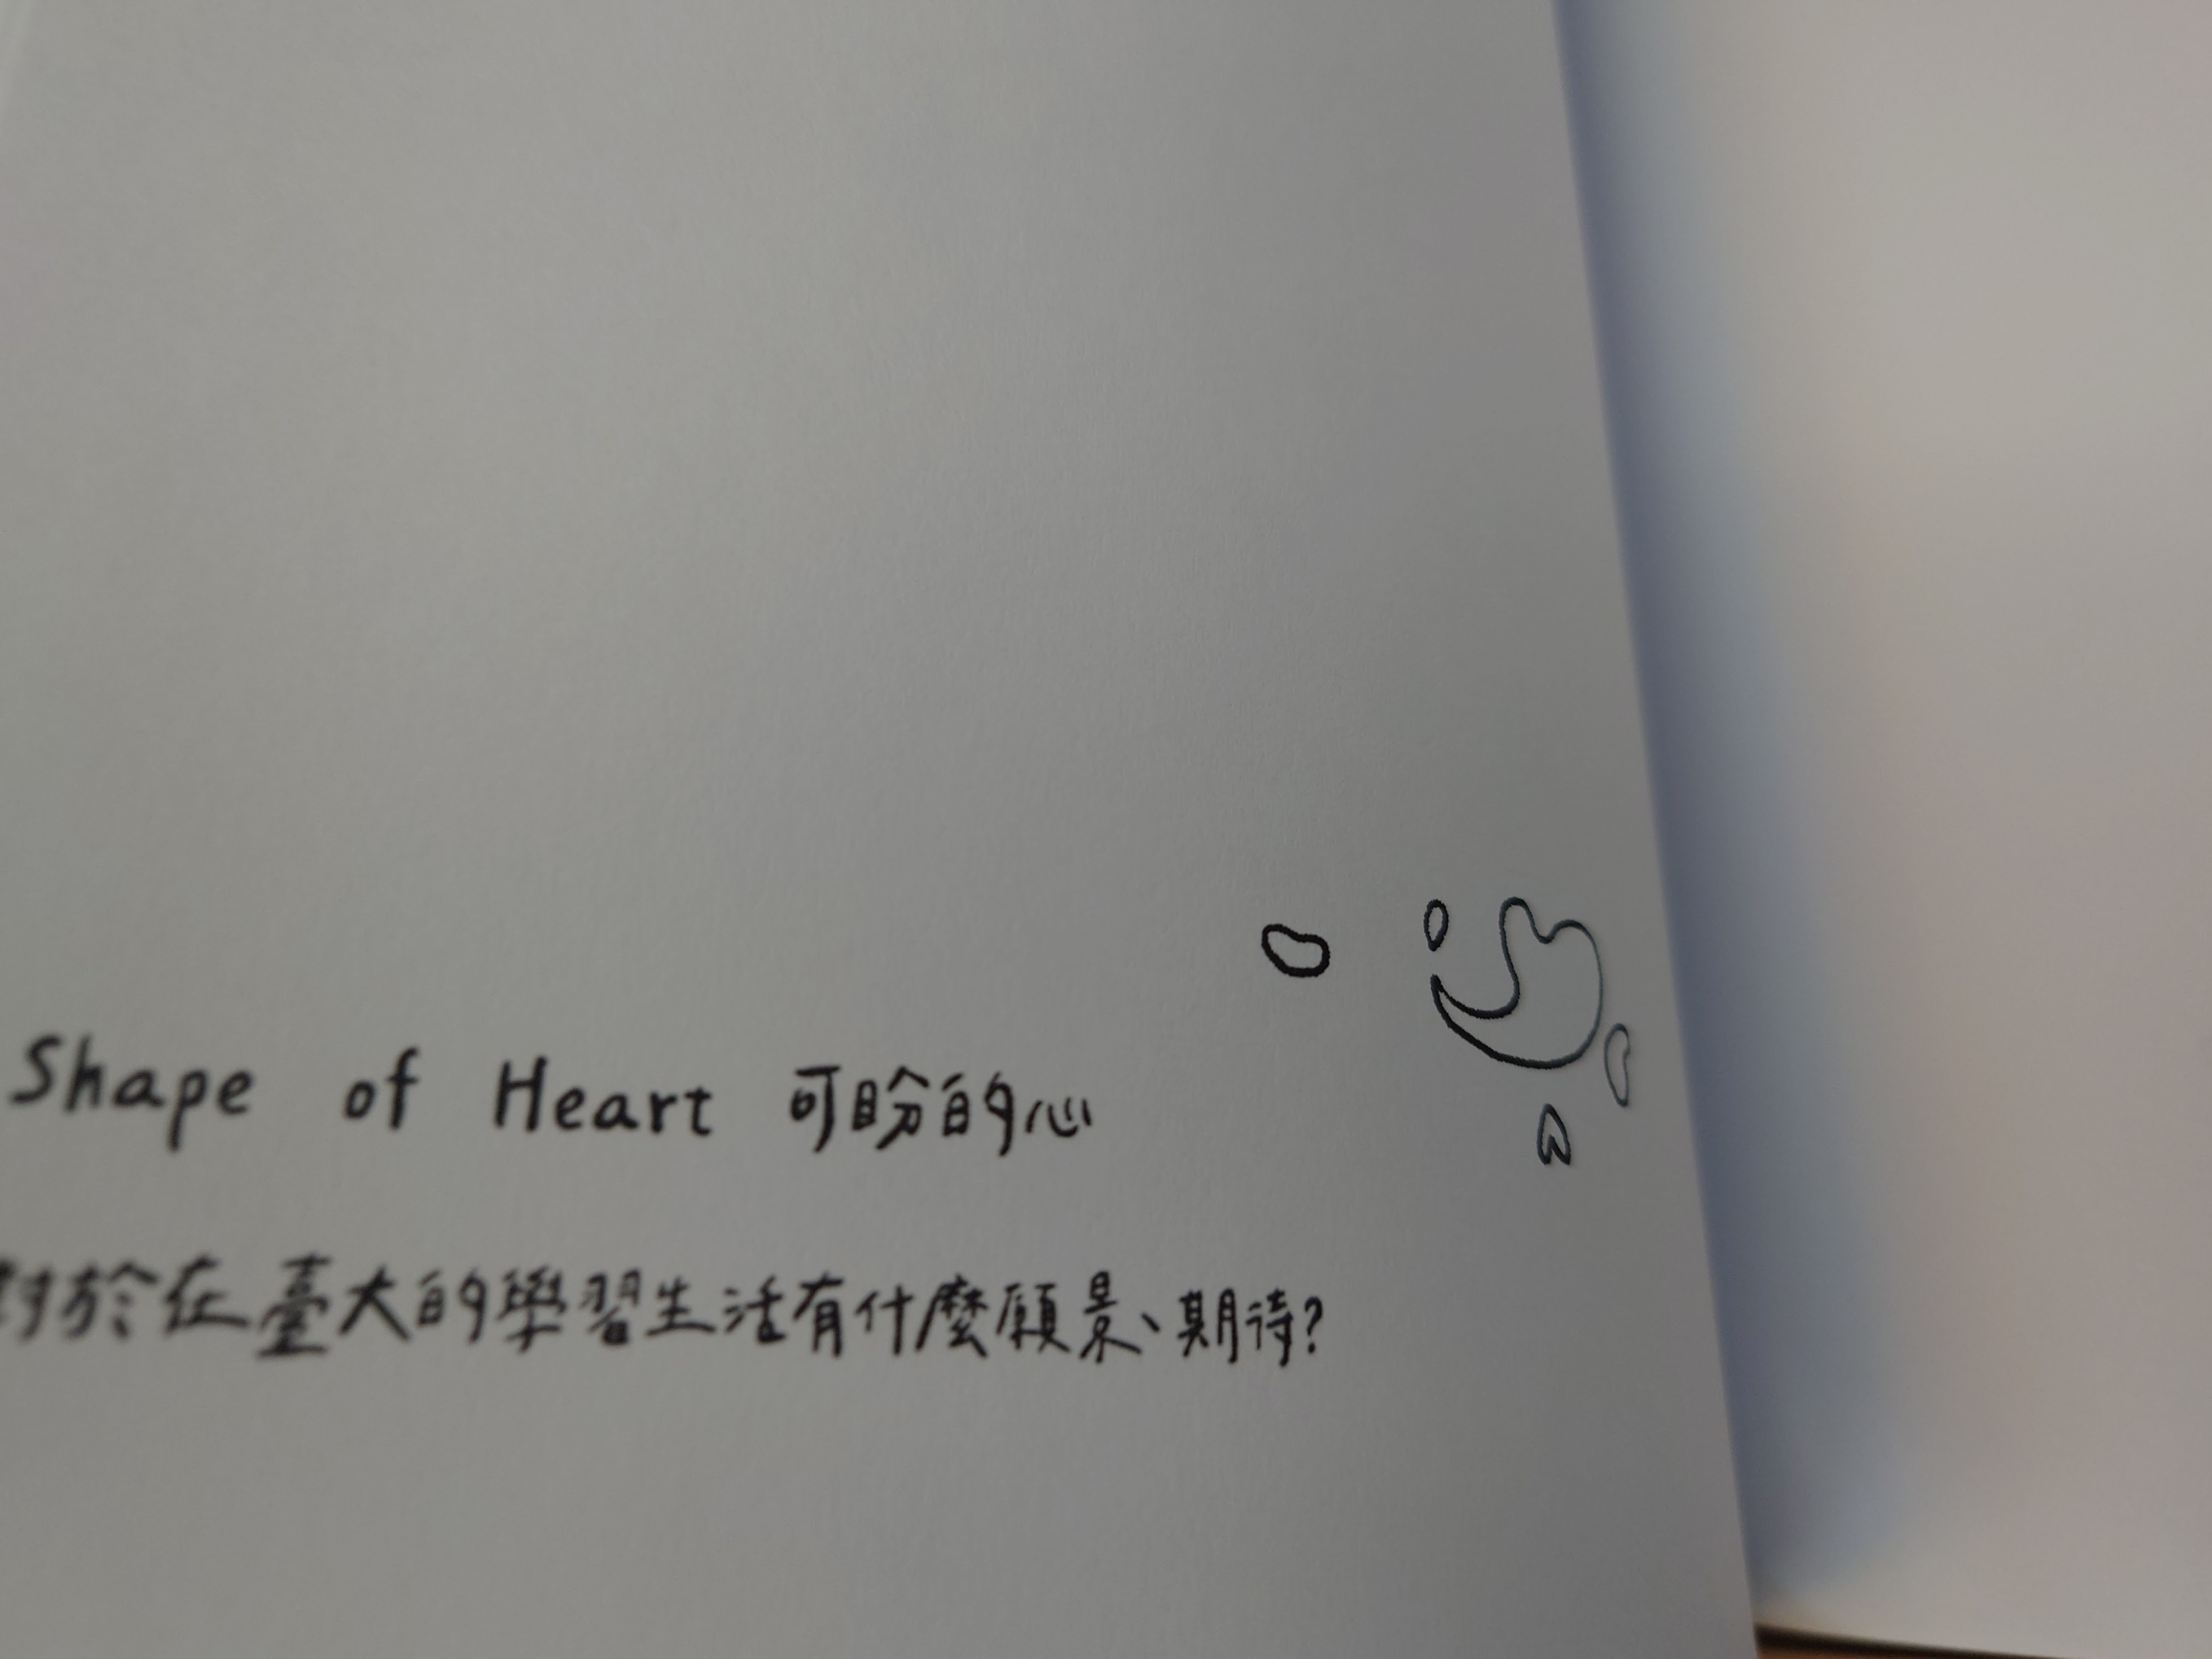 Shape of Heart 可盼的心
對於在臺大的學習生活有什麼願景、期待?